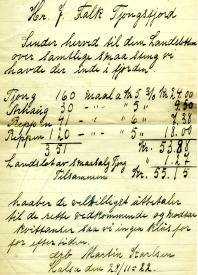 Hr. J. Falk Tjongsfjord
Sender herved til dem Landslotten
over samtlige smaa steng vi
havde der inde i fjorden.
Tjong 160 maal a Kr 5 3/0 Kr 24.00
30 - " - " 5 " 4.50
41 - " - " 6 " 7.38
Reppen 120 - " - 5 " 18.00
351 Kr. 53.88
Landslot av smaasalg Tjong " 1.27
Tilsammen Kr. 55.15
haaber de velvilligst utbetaler
til de rette vedkommende og
Kvittanser saa vi ingen
for eftertiden.
Martin Karlsen
Halsa den 29/11-22.